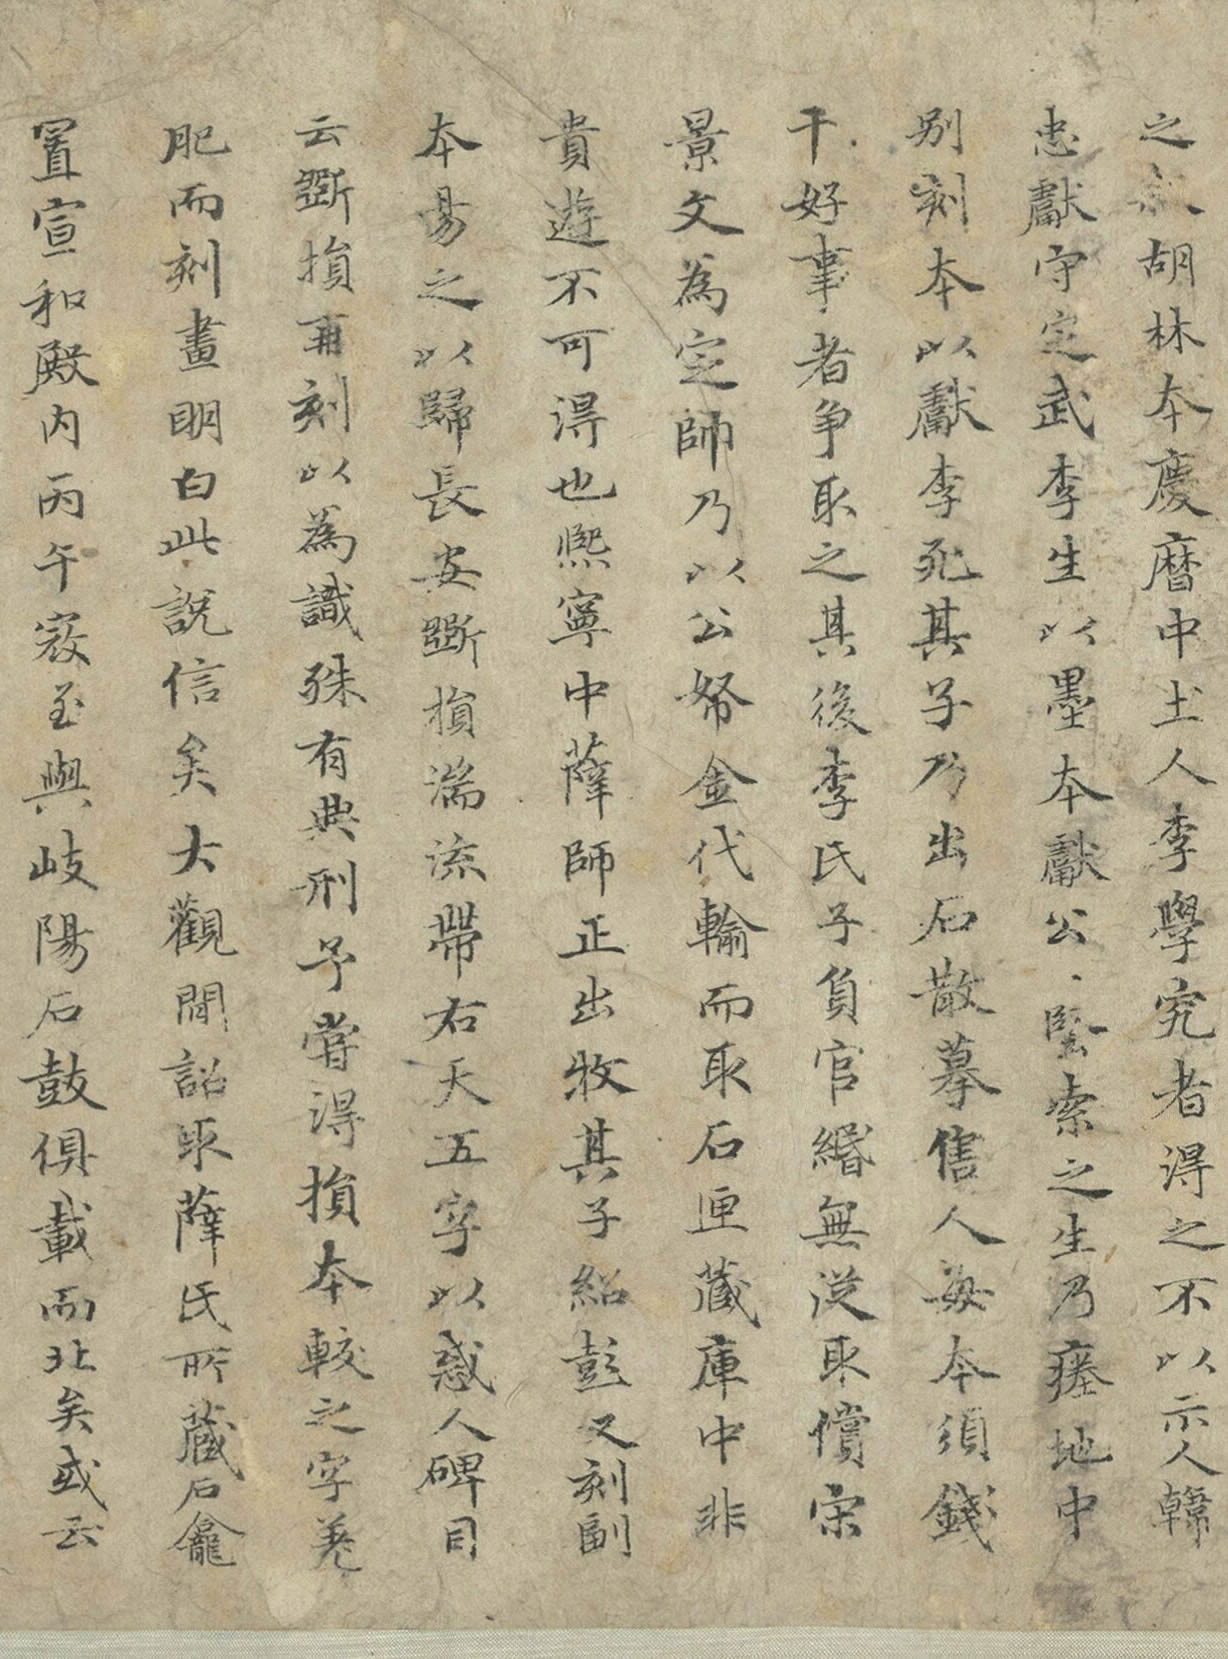 之胡林本慶曆中土人李學究者得之不以示人韓
忠獻守定武李生以墨本獻公公堅索之生乃瘞地中
别刻本以獻李死其子乃出石散摹售人每本須錢
干好事者争取之其後李氏子負官緡無從取償宋
景文為定帥乃以公帑金代輸而取石匣藏庫中非
貴遊不可得也熙寧中薛師正出牧其子紹彭又刻副
本易之以歸長安斲損湍流帶右天五字以惑人碑目
云斲損再刻以為識殊有典刑予嘗得損本較之字差
肥而刻畫明白此說信矣大觀間詔取薛氏所藏石龕
置宣和殿内丙午寇至與岐陽石鼓俱載而北矣或云